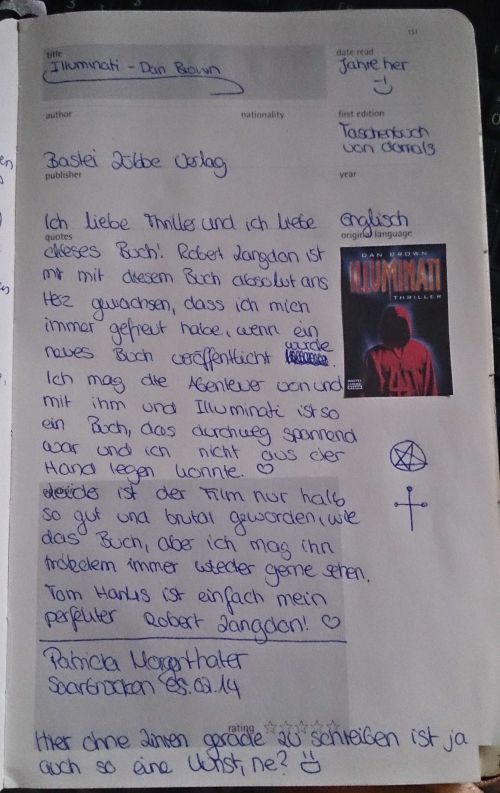 151
title
date read
Illuminati - Dan Brown
Jahre her
author
nationality
first edition
Taschenbuch
von damals
Bastei Lübbe Verlag
publisher
year
Ich liebe Thriller und ich liebe
englisch
quotes
original language
dieses Buch! Robert Langdon ist
mir mit diesem Buch absolut ans
Herz gewachsen, dass ich mich
immer gefreut habe, wenn ein
neues Buch veröffentlicht wurde.
DAN BROWN
ILLUMINATI
THRILLER
Ich mag die Abenteuer von und
mit ihm und Illuminati ist so
ein Buch, das durchweg spannend
war und ich nicht aus der
Hand legen konnte. ♡
Leider ist der Film nur halb
so gut und brutal geworden, wie
das Buch, aber ich mag ihn
trotzdem immer wieder gerne sehen.
Tom Hanks ist einfach mein
perfekter Robert Langdon! ♡
Patricia Morgenthaler
Saarbrücken 05.02.14
rating ☆☆☆☆☆
Hier ohne Linien gerade zu schreiben ist ja
auch so eine Kunst, ne? :)